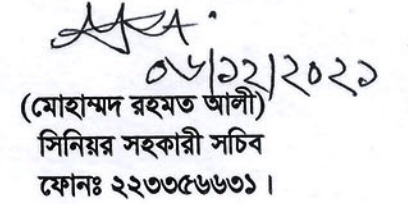 ০৬/১২/২০২১
(মোহাম্মদ রহমত আলী)
সিনিয়র সহকারী সচিব
ফোনঃ ২২৩৩৫৬৬৩১ ।